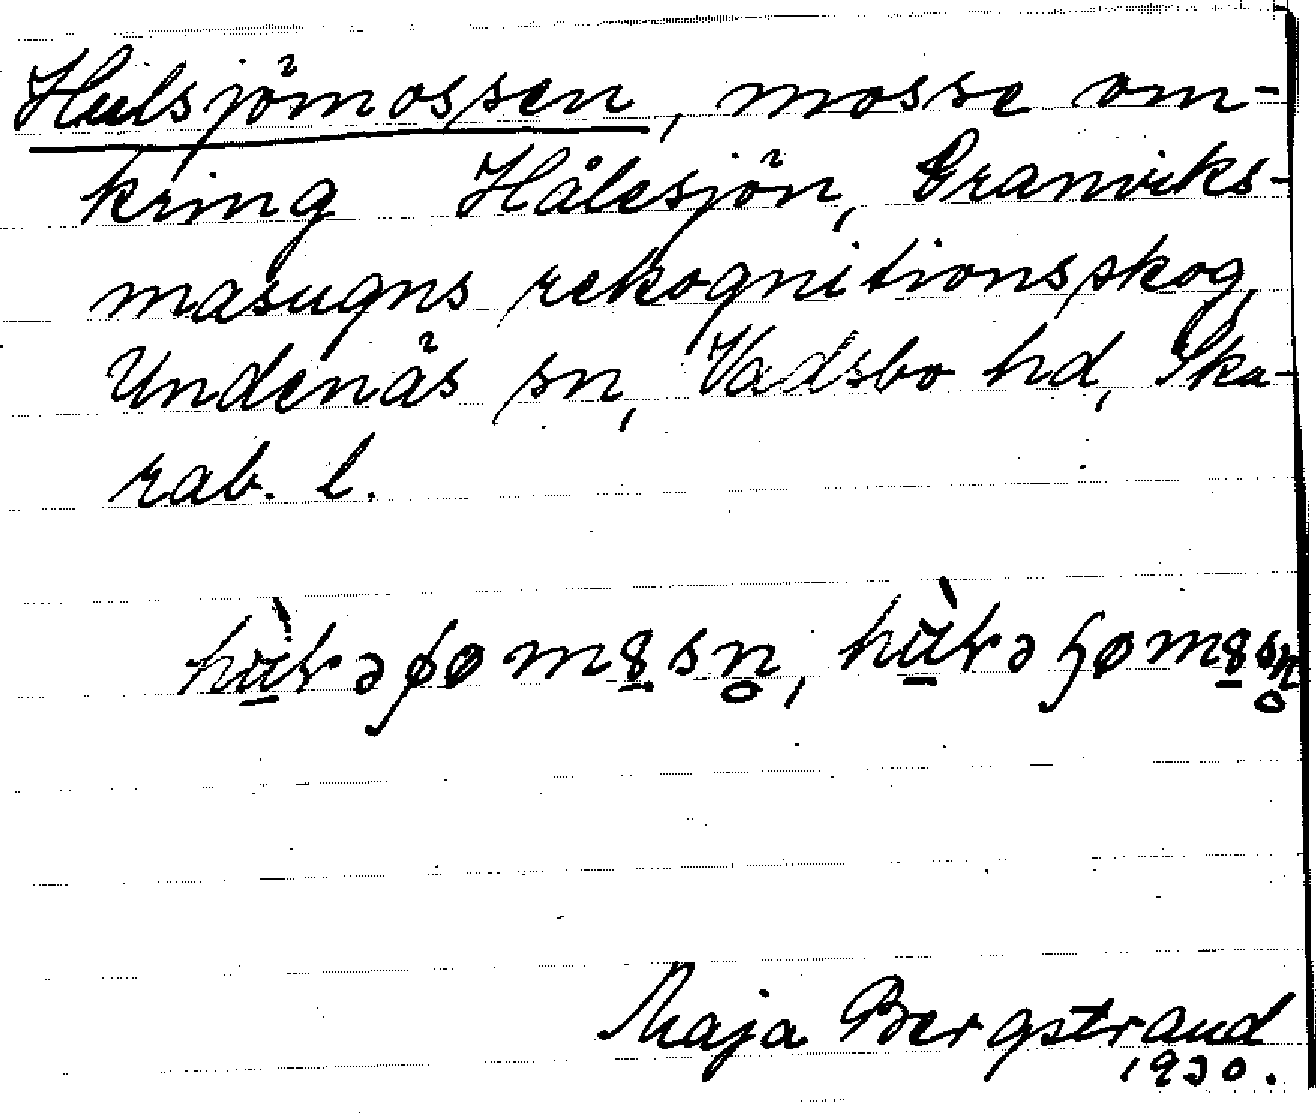 Hulsjömossen, mosse om-
kring Hålesjön, Granviks-
masugns rekognitionsskog,
Undenäs sn, Vadsbo hd, Ska-
rab. l.
Maja Bergstrand
1930.